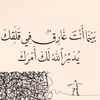 بَينَمَا أَنتَ غَارِقٌ فِي قَلَقِكَ
يُدَبِّرُ اللهُ لَكَ أَمْرَكَ